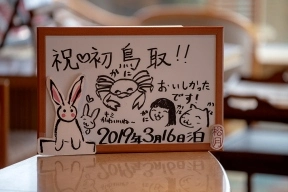 祝♡初鳥取!!
かに
おいしかった
です!
かに
2019年3月16日泊